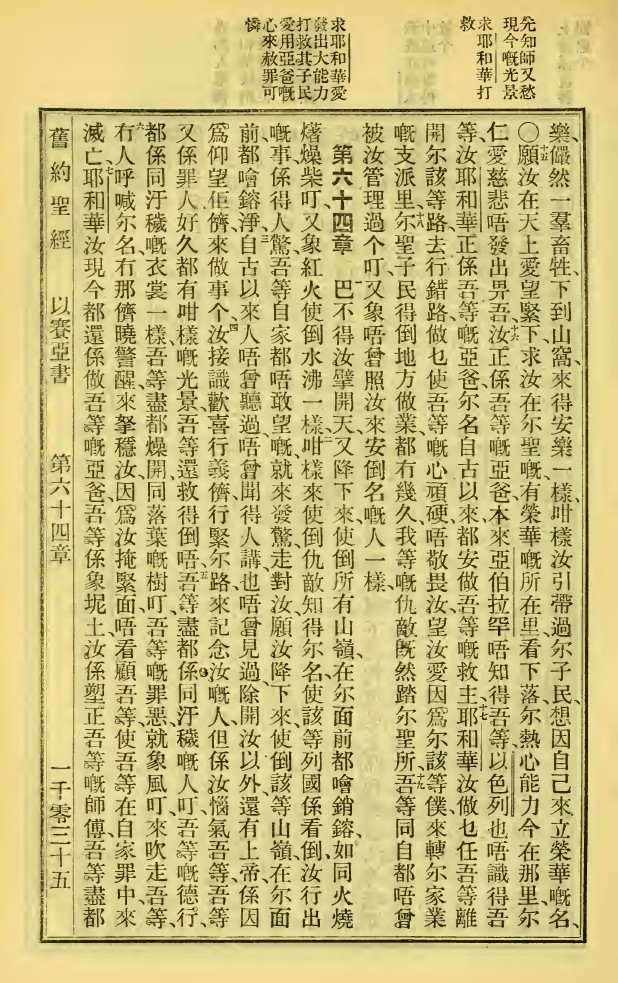 先知師又愁
現今嘅光景
求耶和華打
救
求耶和華愛
發出大能力
打救其子民
愛用亞爸嘅
心來赦罪可
憐
樂、儼然一羣畜牲、下到山窩來得安樂一樣、咁樣汝引帶過尔子民、想因自己來立榮華嘅名、
〇十五願汝在天上愛望緊下、求汝在尔聖嘅、有榮華嘅所在里看下落、尔熱心能力今在那里、尔
仁愛慈悲唔發出畀吾、十六汝正係吾等嘅亞爸、本來亞伯拉罕唔知得吾等、以色列也唔識得吾
等、汝耶和華正係吾等嘅亞爸、尔名自古以來都安做吾等嘅救主、十七耶和華汝做乜任吾等離
開尔該等路去行錯路、做乜使吾等嘅心頑硬唔敬畏汝、望汝愛因爲尔該等僕來轉尔家業
嘅支派里、十八尔聖子民得倒地方做業都冇幾久、我等嘅仇敵旣然踏尔聖所、十九吾等同自都唔曾
被汝管理過个叮、又象唔曾照汝來安倒名嘅人一樣、
第六十四章 一巴不得汝擘開天、又降下來、使倒所有山嶺、在尔面前都噲銷鎔、二如同火燒
𤏲燥柴叮、又象紅火使倒水沸一樣、咁樣來使倒仇敵知得尔名、使該等列國係看倒、汝行出
嘅事係得人驚、吾等自家都唔敢望嘅、就來發驚走對汝、願汝降下來、使倒該等山嶺在尔面
前都噲鎔淨、三自古以來人唔曾聽過、唔曾聞得人講、也唔曾見過、除開汝以外、還有上帝係因
爲仰望佢儕來做事个、四汝接識歡喜行義儕、行緊尔路來記念汝嘅人、但係汝惱氣吾等、吾等
又係罪人、好久都有咁樣嘅光景、吾等還救得倒唔、五吾等盡都係同汙穢嘅人叮、吾等嘅德行、
都係同汙穢嘅衣裳一樣、吾等盡都燥開、同落葉嘅樹叮、吾等嘅罪惡、就象風叮、來吹走吾等、
六冇人呼喊尔名、冇那儕曉警醒來拏穩汝、因爲汝掩緊面唔看顧吾等、使吾等在自家罪中來
滅亡、七耶和華汝現今都還係做吾等嘅亞爸、吾等係象坭土、汝係塑正吾等嘅師傅、吾等盡都
舊約聖經 以賽亞書 第六十四章 一千零三十五